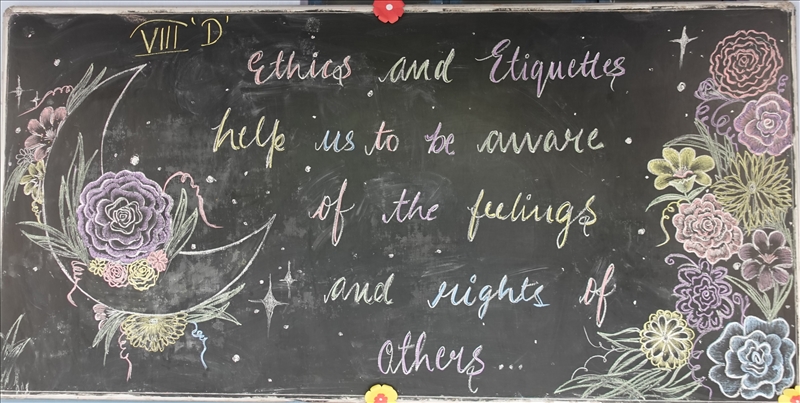 VIII 'D'
Ethics and Etiquettes
help us to be aware
of the feelings
and rights of
others...